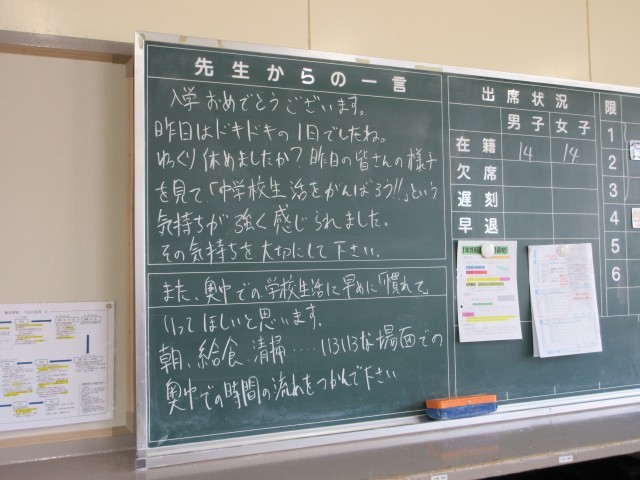 先生からの一言
入学おめでとうございます。
昨日はドキドキの1日でしたね。
ゆっくり休めましたか？昨日の皆さんの様子
を見て、「中学校生活をがんばろう!!」という
気持ちが強く感じられました。
その気持ちを大切にして下さい。
また、奥中での学校生活に早めに「慣れて」
いってほしいと思います。
朝、給食、清掃……いろいろな場面での
奥中での時間の流れをつかんで下さい
出席状況
男子 女子
在籍 14 14
欠席
遅刻
早退
限
1
2
3
4
5
6